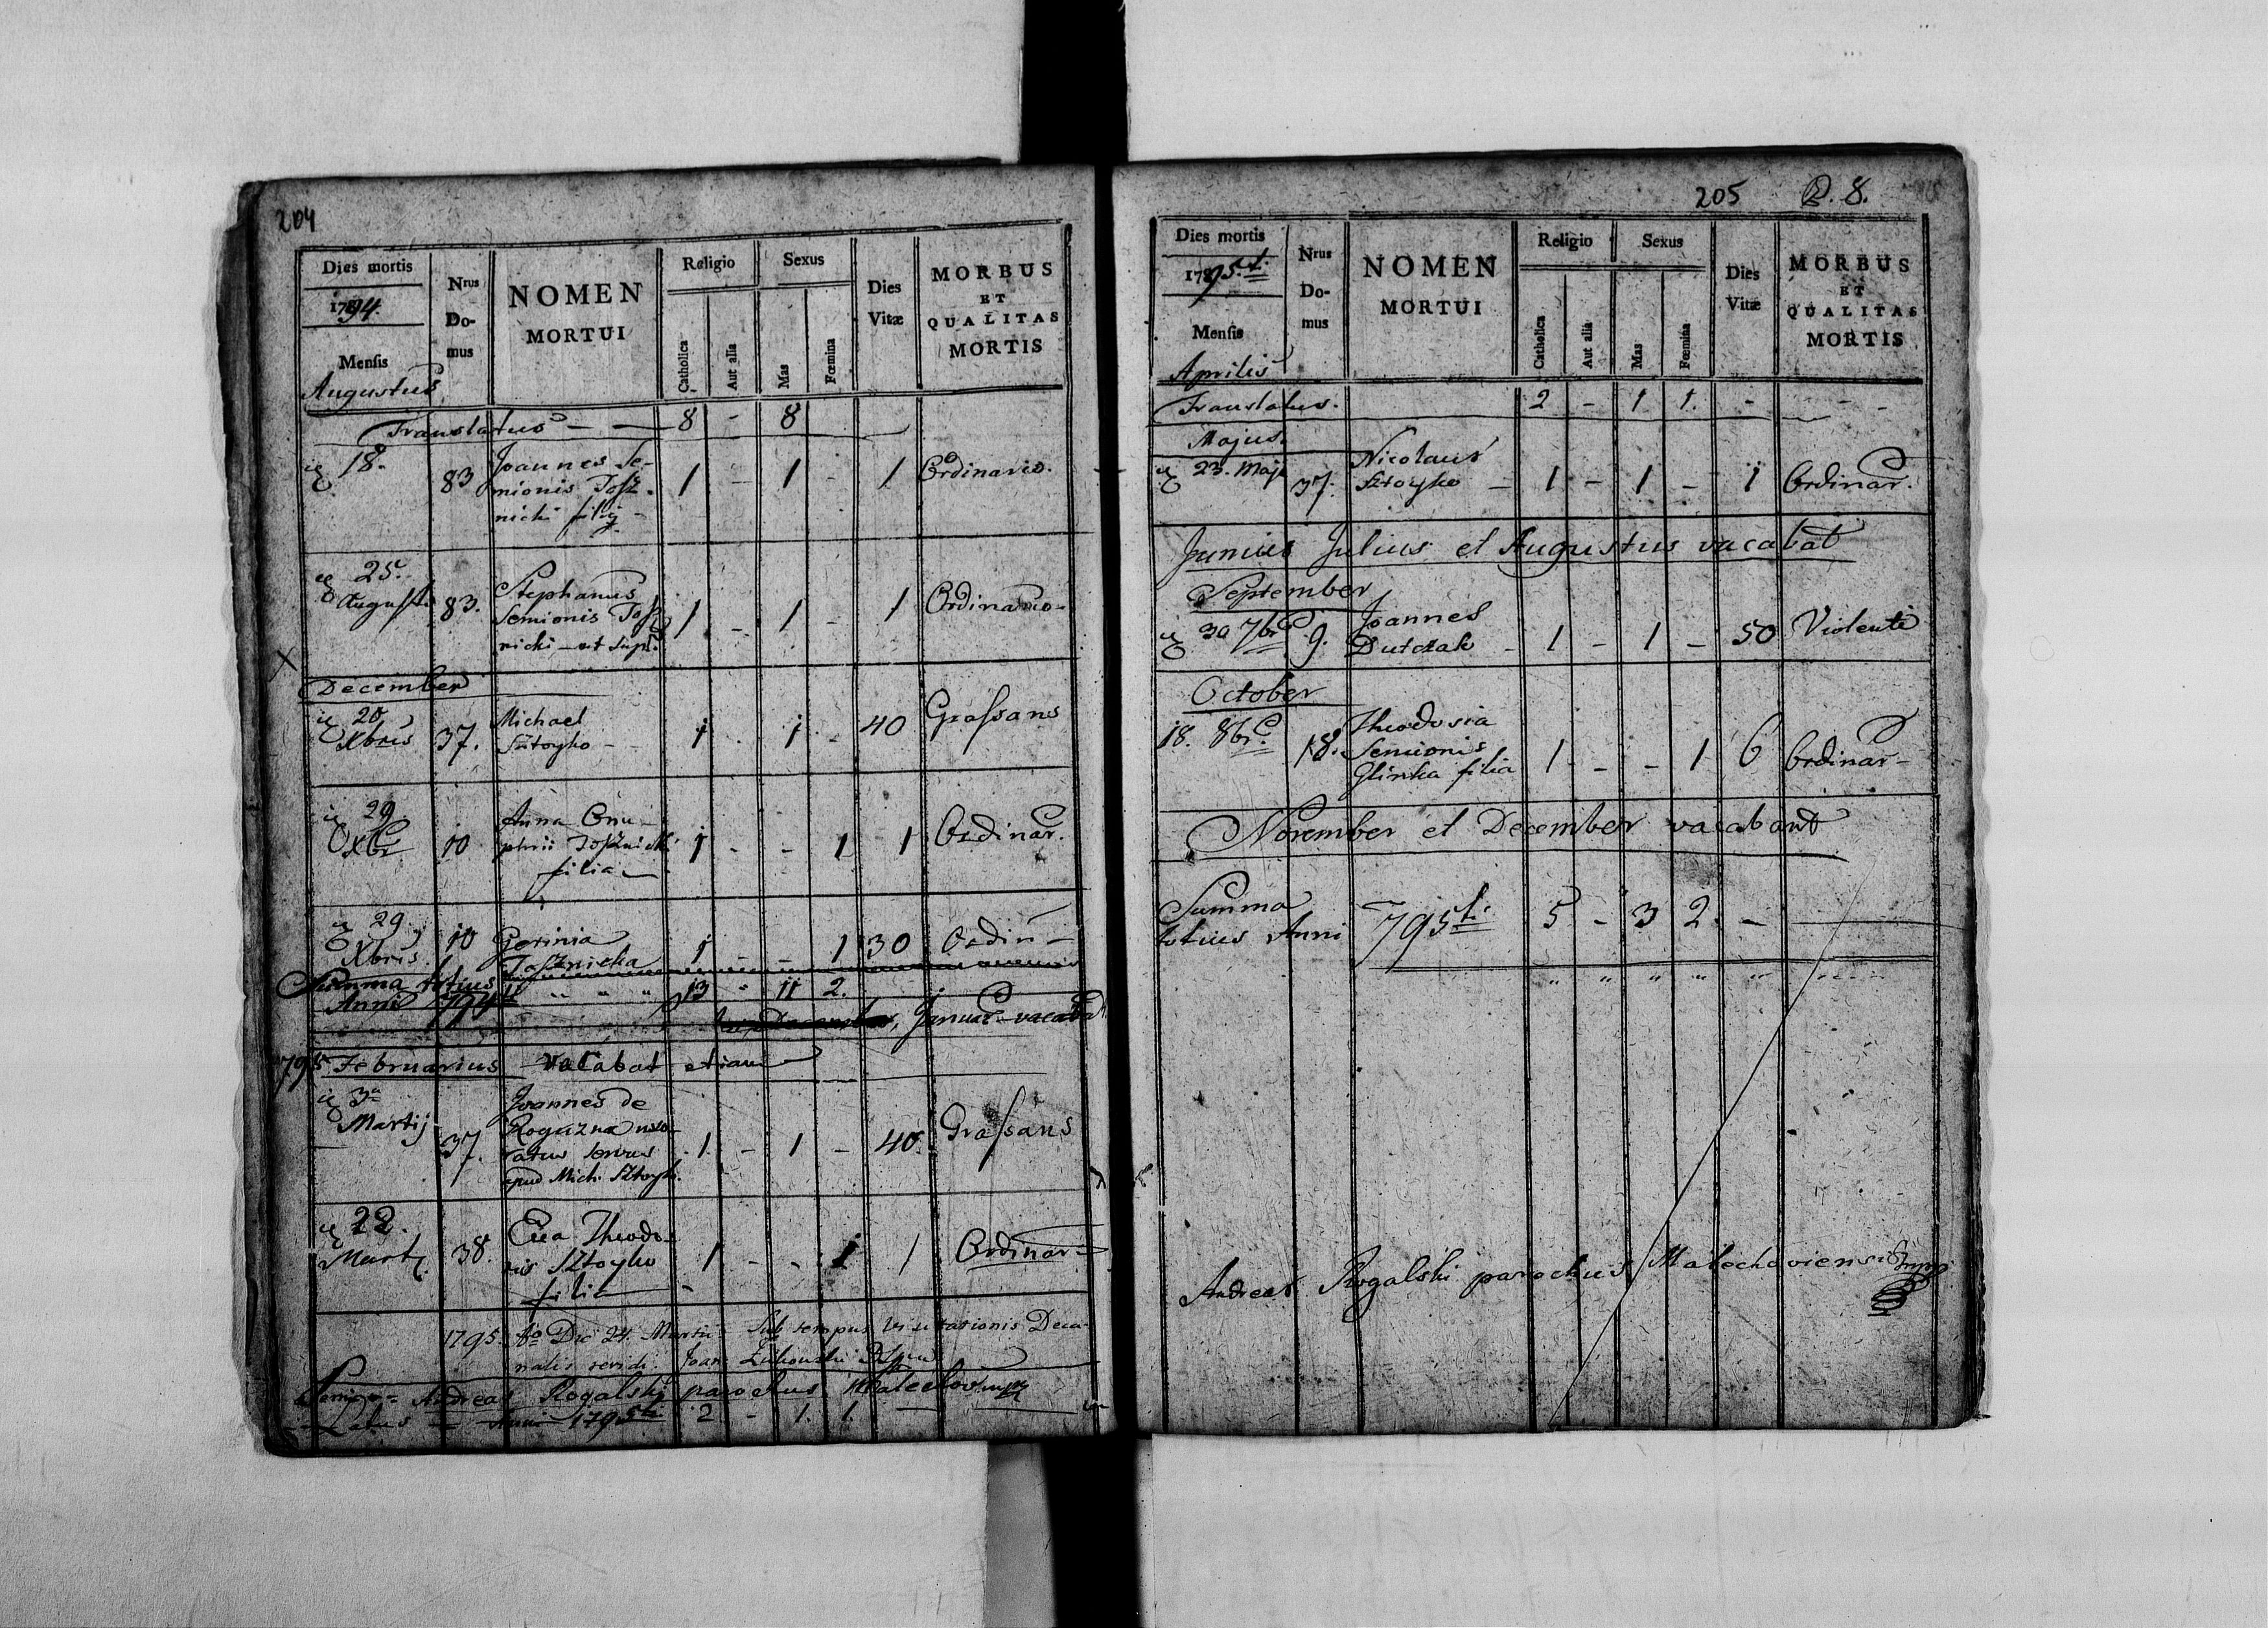 204
Dies mortis
1794.
Mensis
Augustus
Nrus
Do-
mus
NOMEN
MORTUI
Religio
Catholica
Aut alia
Sexus
Mas
Fœmina
Dies
Vitæ
MORBUS
ET
QUALITAS
MORTIS
Translatus — — 8 - 8
18. 83 Joannes Se-
mionis Tosz-
nicki filij - 1 - 1 - 1 Ordinario.
25.
August. 83. Stephanus
Semionis Tosz
nicki - ut supr. 1 - 1 - 1 Ordinario -
December
20
Xbris 37. Michael
Sztoyko - 1 - 1 - 40 Grassans
29
Xbr. 10 Anna Onu-
phrii Tosznicki
filia 1 - - 1 1 Ordinar.
29
Xbris. 10 Gerinia
Tosznicka 1 - - 1 30 Ordin -
Summa totius
Anni 794ti 13 " 11 2.
Januar. vacabat
795 Februarius vacabat etiam
3a
Martij 37. Joannes de
Roguzna uxo-
ratus servus
apud Mich. Sztoyk. 1 - 1 - 40. Grassans
22.
Martij 38. Eva Theodo-
ris Sztoyko
filia 1 - - 1 1 Ordinar -
1795. Ao Die 24. Martii Sub tempus Visitationis Deca-
nalis revidi. Joan
Andreas Rogalski parochus Malechov. mpp
Latus — Anni 1795ti 2 - 1. 1.
205 P. 8.
Dies mortis
1795.t.
Mensis
Aprilis
Nrus
Do-
mus
NOMEN
MORTUI
Religio
Catholica
Aut alia
Sexus
Mas
Fœmina
Dies
Vitæ
MORBUS
ET
QUALITAS
MORTIS
Translatus. 2 - 1 1. - - -
Majus.
23. Maji 37. Nicolaus
Sztoyko - 1 - 1 - 1 Ordinar.
Junius Julius et Augustus vacabat
September
30 7br. 9. Joannes
Dutczak - 1 - 1 - 50 Violenti
October
18. 8br. 18. Theodosia
Semionis
Glinka filia 1 - - 1 6 Ordinar -
November et December vacabant
Summa
totius Anni 795ti. 5 - 3 2. -
Andreas Rogalski parochus Malechoviensis mpp